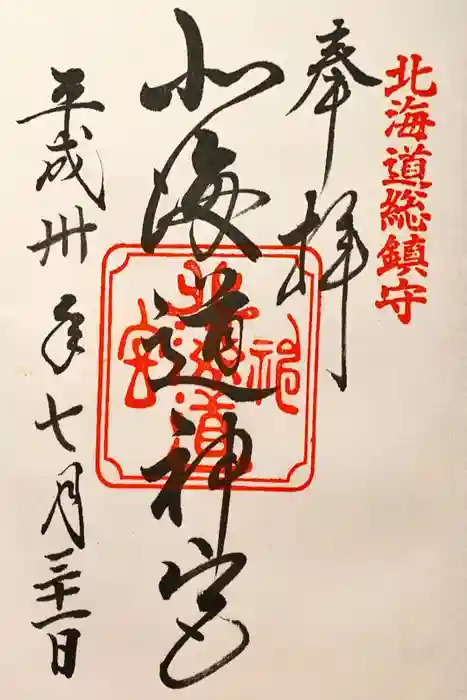 北海道総鎮守
奉拝
北海道神宮
平成卅年七月三十一日
北海道神宮